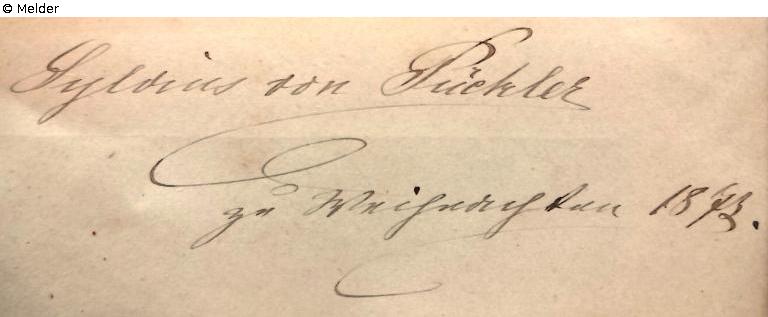 © Melder
Sylvius von Pückler
zu Weihnachten 1873.